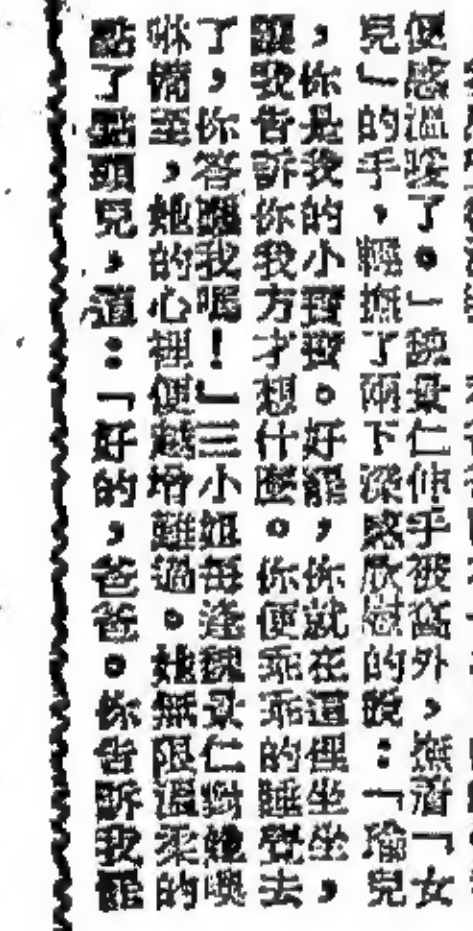 便感溫暖了。」魏景仁伸手被窩外,撫着「女
兒」的手,輕撫了兩下深感欣慰的說:「瑜兒
,你是我的小寶寶。好罷,你就在這裡坐坐,
我告訴你我方才想什麼。你便乖乖的睡覺去
了,你答應我嗎!」三小姐每逢魏景仁對她噢
咻備至,她的心裡便越增難過。她無限溫柔的
點了點頭兒,道:「好的,爸爸。你告訴我罷